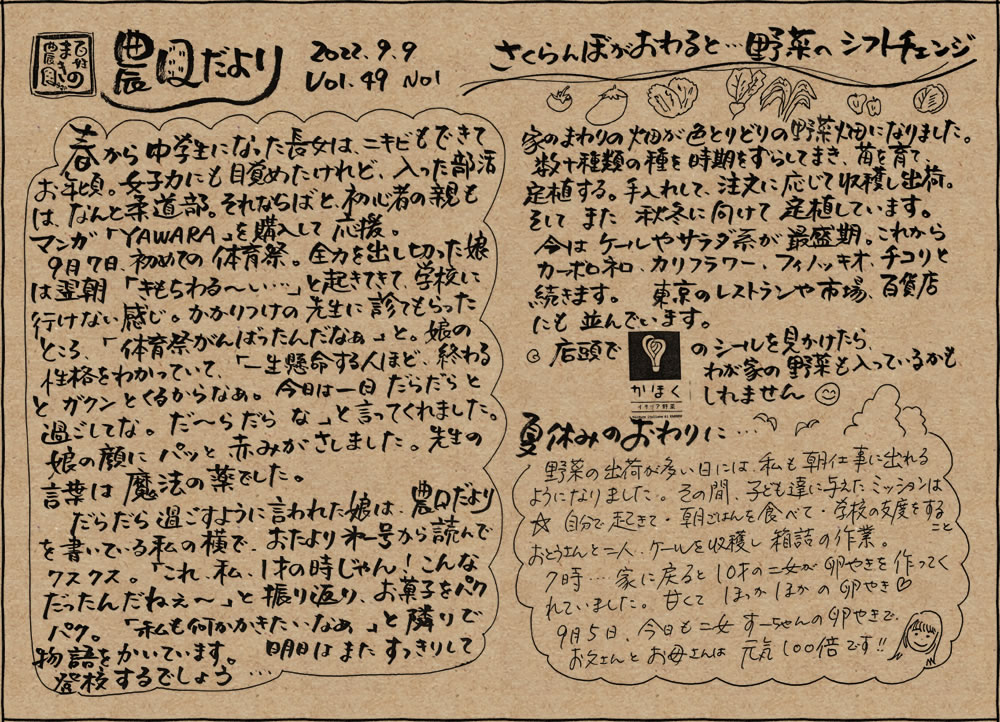 まきの
農園
農園だより
2022.9.9
Vol.49 No1
春から中学生になった長女は、ニキビもできて
お年頃。女子力にも目覚めたけれど、入った部活
は、なんと柔道部。それならばと、初心者の親も
マンガ「YAWARA」を購入して応援。
9月7日、初めての体育祭。全力を出し切った娘
は翌朝「きもちわる〜い…」と起きてきて、学校に
行けない感じ。かかりつけの先生に診てもらった
ところ、「体育祭がんばったんだなぁ」と。娘の
性格をわかっていて、「一生懸命する人ほど、終わる
とガクンとくるからなぁ。今日は一日だらだらと
過ごしてな。だ〜らだらな」と言ってくれました。
娘の顔にパッと赤みがさしました。先生の
言葉は魔法の薬でした。
だらだら過ごすように言われた娘は、農园だより
を書いている私の横で、おたより第一号から読んで
クスクス。「これ、私、1才の時じゃん!こんな
だったんだねぇ〜」と振り返り、お菓子をパク
パク。「私も何かかきたいなぁ」と隣りで
物語をかいています。明日はまたすっきりして
登校するでしょう…
さくらんぼがおわると…野菜へシフトチェンジ
家のまわりの畑が色とりどりの野菜畑になりました。
数十種類の種を時期をずらしてまき、苗を育て、
定植する。手入れして、注文に応じて収穫し出荷。
そしてまた秋冬に向けて定植しています。
今はケールやサラダ系が最盛期。これから
カーボロネロ、カリフラワー、フィノッキオ、チコリと
続きます。東京のレストランや市場、百貨店
にも並んでいます。
店頭で
かほく
イタリア野菜
のシールを見かけたら、
わが家の野菜も入っているかも
しれません
夏休みのおわりに…
野菜の出荷が多い日には、私も朝仕事に出れる
ようになりました。その間、子ども達に与えたミッションは
☆自分で起きて・朝ごはんを食べて・学校の支度をする
こと
おとうさんと二人、ケールを収穫し箱詰の作業。
7時…家に戻ると10才の二女が卵やきを作ってく
れていました。甘くてほっかほかの卵やき♡
9月5日、今日も二女すーちゃんの卵やきで、
お父さんとお母さんは元気100倍です!!